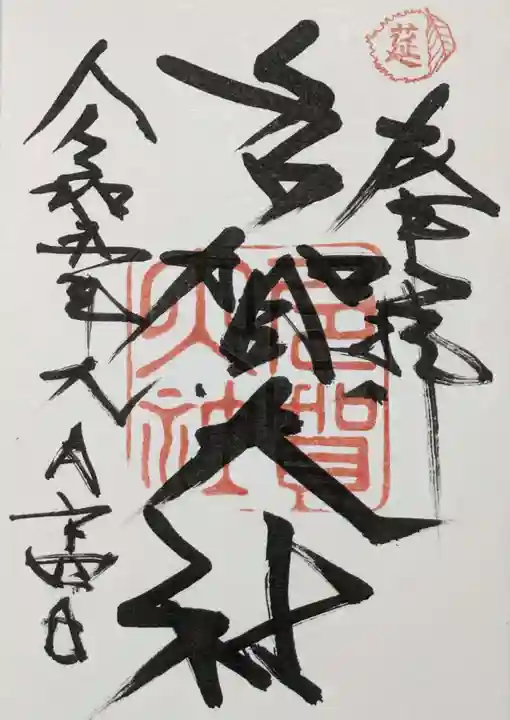 莚
奉拝
多賀大社
多賀大社
令和五年 月 日